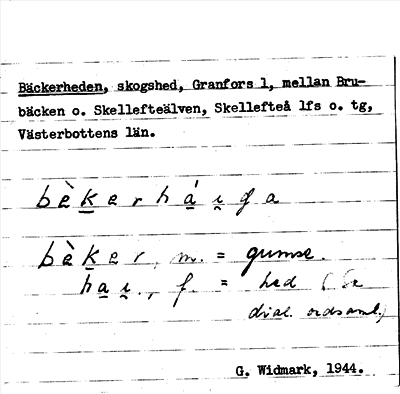 Bäckerheden, skogshed, Granfors 1, mellan Bru-
bäcken o. Skellefteälven, Skellefteå lfs o. tg,
Västerbottens län.
bèkerháiga
bèker, m. = gumse.
hai., f. = hed (Se
dial. ordsaml.)
G. Widmark, 1944.